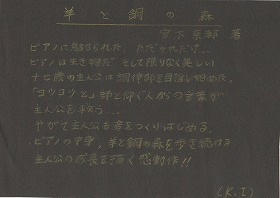 羊と鋼の森
宮下奈都 著
ピアノに魅せられた、ただそれだけ…
ピアノは生き物だ そして限りなく美しい
十七歳の主人公は調律師を目指し始めた。
「コツコツと」師と仰ぐ人からの言葉が
主人公を支う…
やがて主人公も音をつくりはじめる。
ピアノの中身、羊と鋼の森を歩き続ける
主人公の成長を描く感動作!!
(K.I)